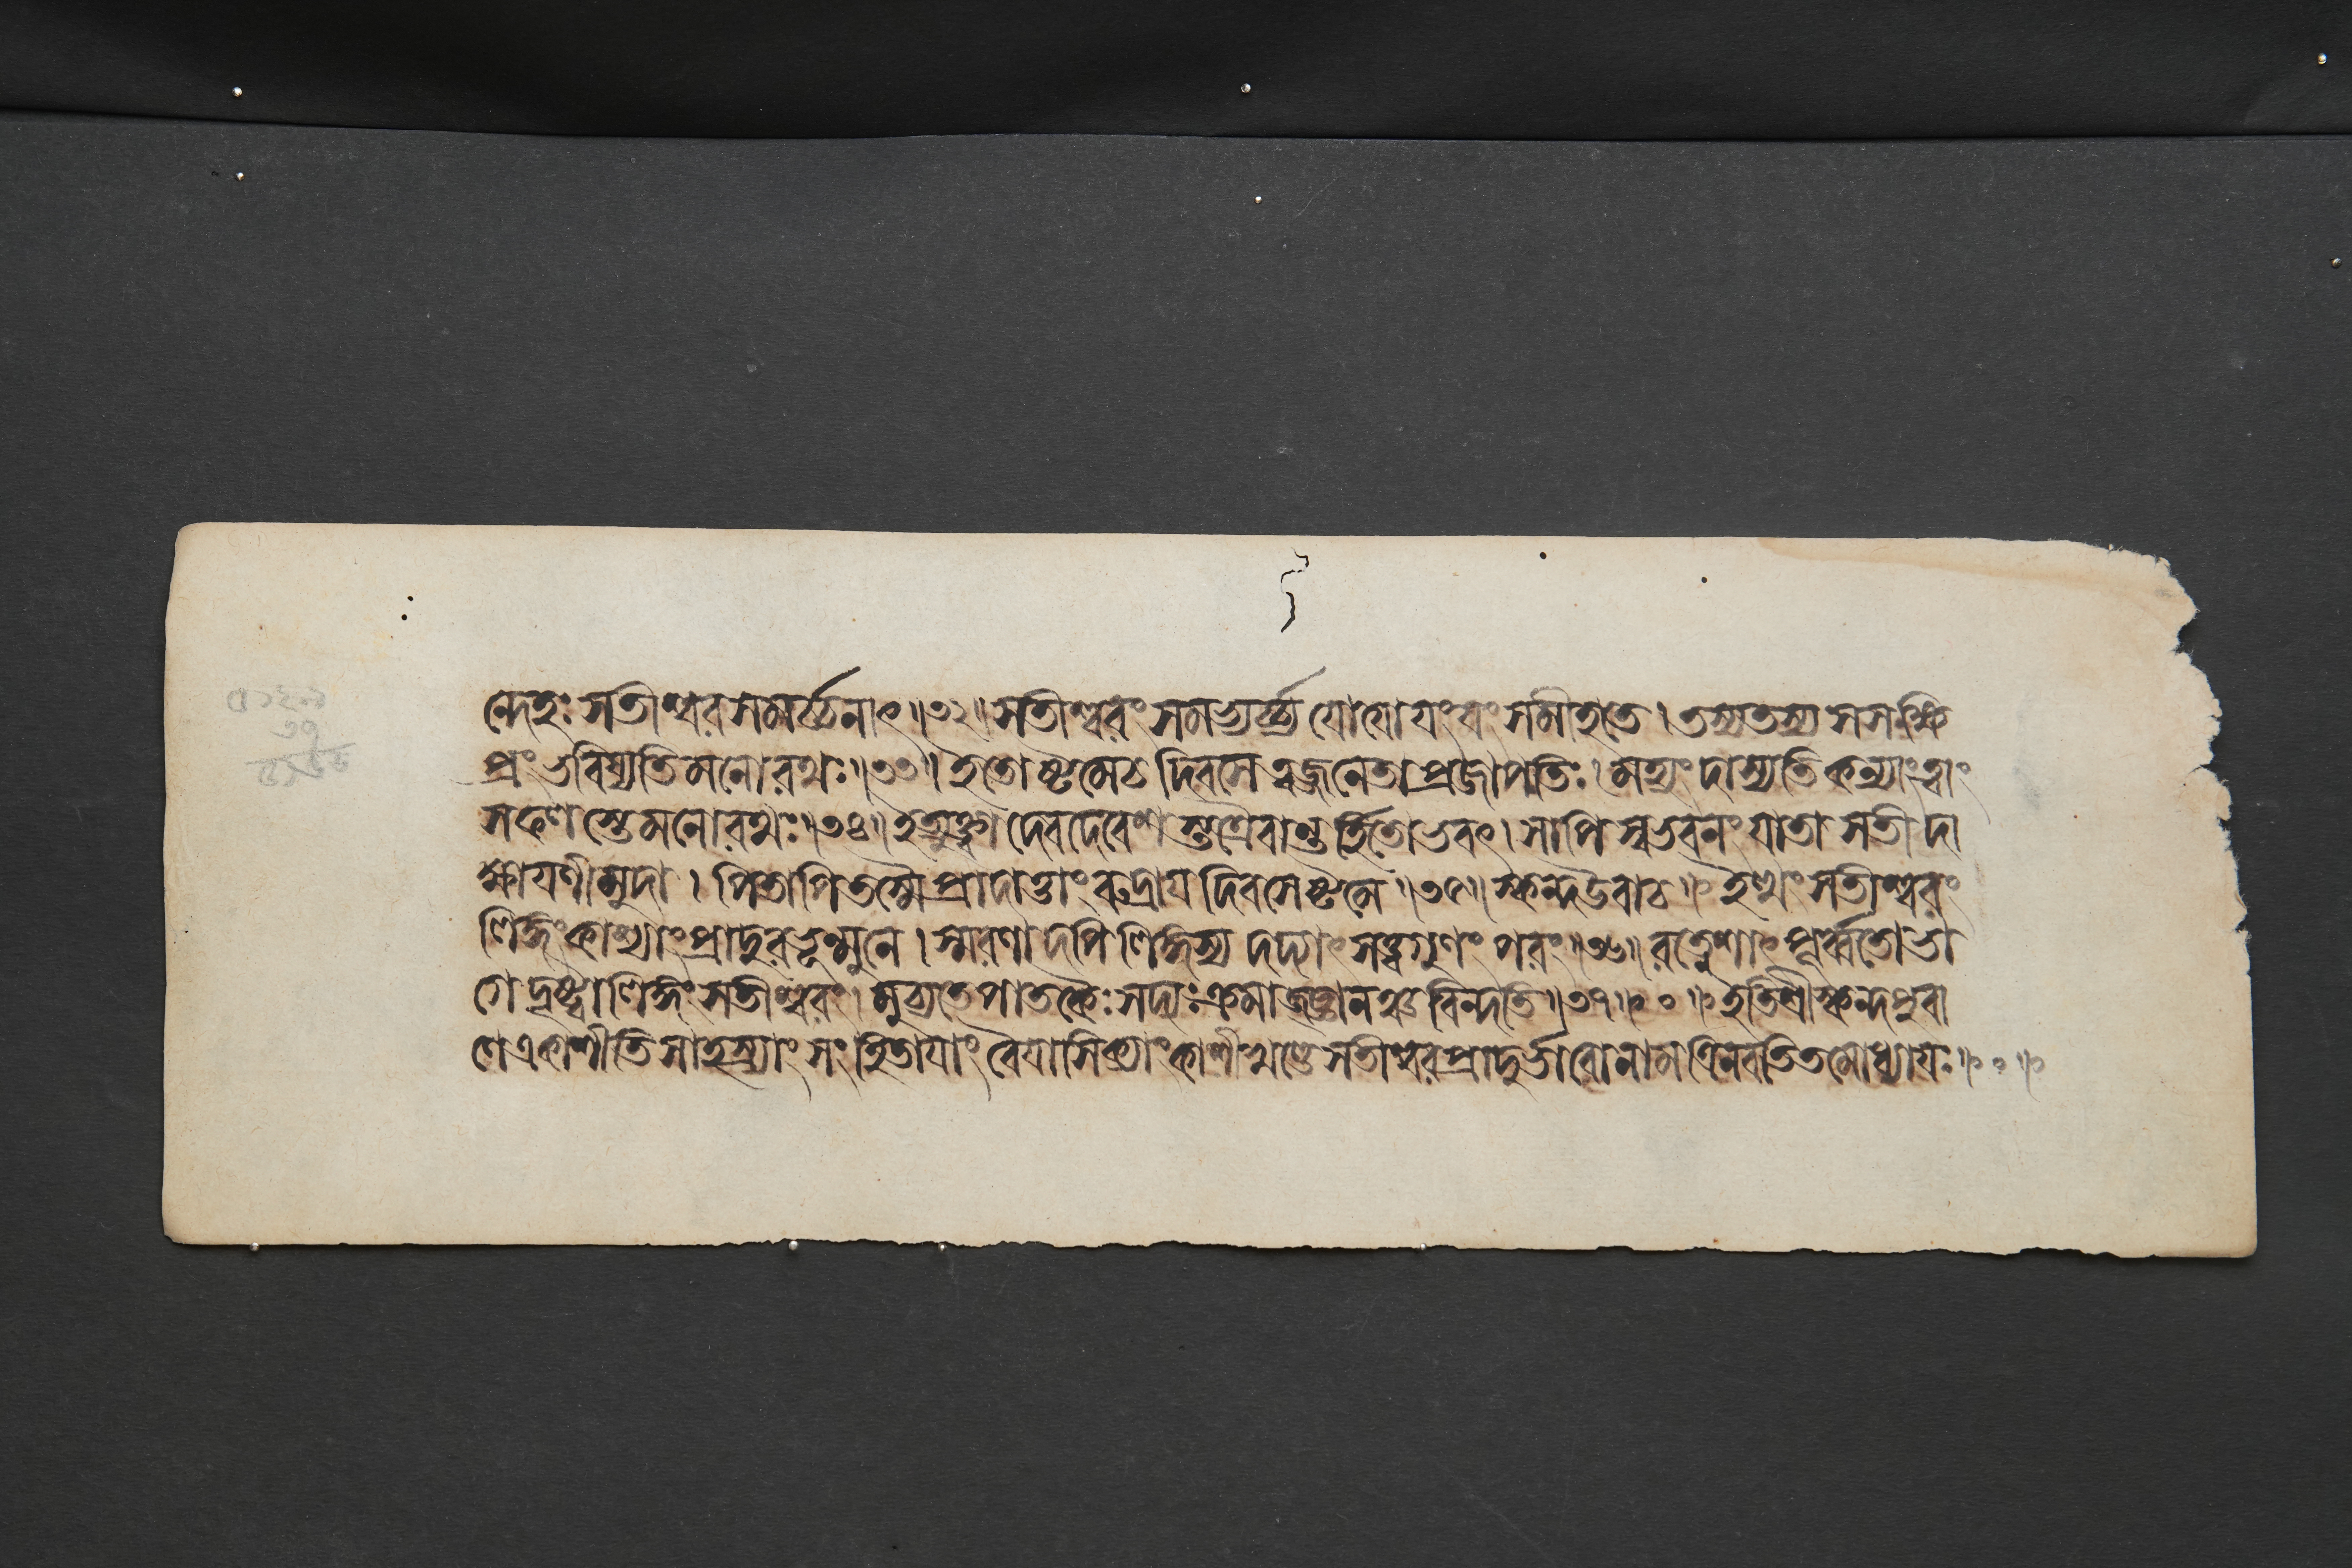 ন্দেহঃ সতীশ্বরসমর্চ্চনাৎ॥৩২॥ সতীশ্বরং সমভ্যর্চ্চ্য যো যো যং যং সমীহতে। তস্য তস্য স স ক্ষি
প্রং ভবিষ্যতি মনোরথঃ॥৩৩॥ ইতোষ্টমে চ দিবসে ত্বজ্জনেতা প্রজাপতিঃ। মহ্যং দাস্যতি কন্যাং ত্বাং
সফলস্তে মনোরথঃ॥৩৪॥ ইত্যুক্ত্বা দেবদেবেশস্তত্রৈবান্তর্হিতোভবৎ। সাপি স্বভবনং যাতা সতী দা
ক্ষায়ণী মুদা। পিতাপি তস্মৈ প্রাদাত্তাং রুদ্রায় দিবসেষ্টমে॥৩৫॥ স্কন্দ উবাচ॥ ইত্থং সতীশ্বরং
লিঙ্গং কাশ্যাং প্রাদুরভূন্মুনে। স্মরণাদপি লিঙ্গস্য দদ্যাৎ সত্ত্বগুণং পরং॥৩৬॥ রত্নেশাৎ পূর্ব্বতো ভা
গে দৃষ্ট্বা লিঙ্গং সতীশ্বরং। মুচ্যতে পাতকৈঃ সদ্যঃ ক্রমাজ্জ্ঞানঞ্চ বিন্দতি॥৩৭॥ ০ ॥ ইতি শ্রীস্কন্দপুরা
ণে একাশীতিসাহস্র্যাং সংহিতায়াং বৈয়াসিক্যাং কাশীখণ্ডে সতীশ্বরপ্রাদুর্ভাবোনাম ত্রিনবতিতমোধ্যায়ঃ॥ ০ ॥